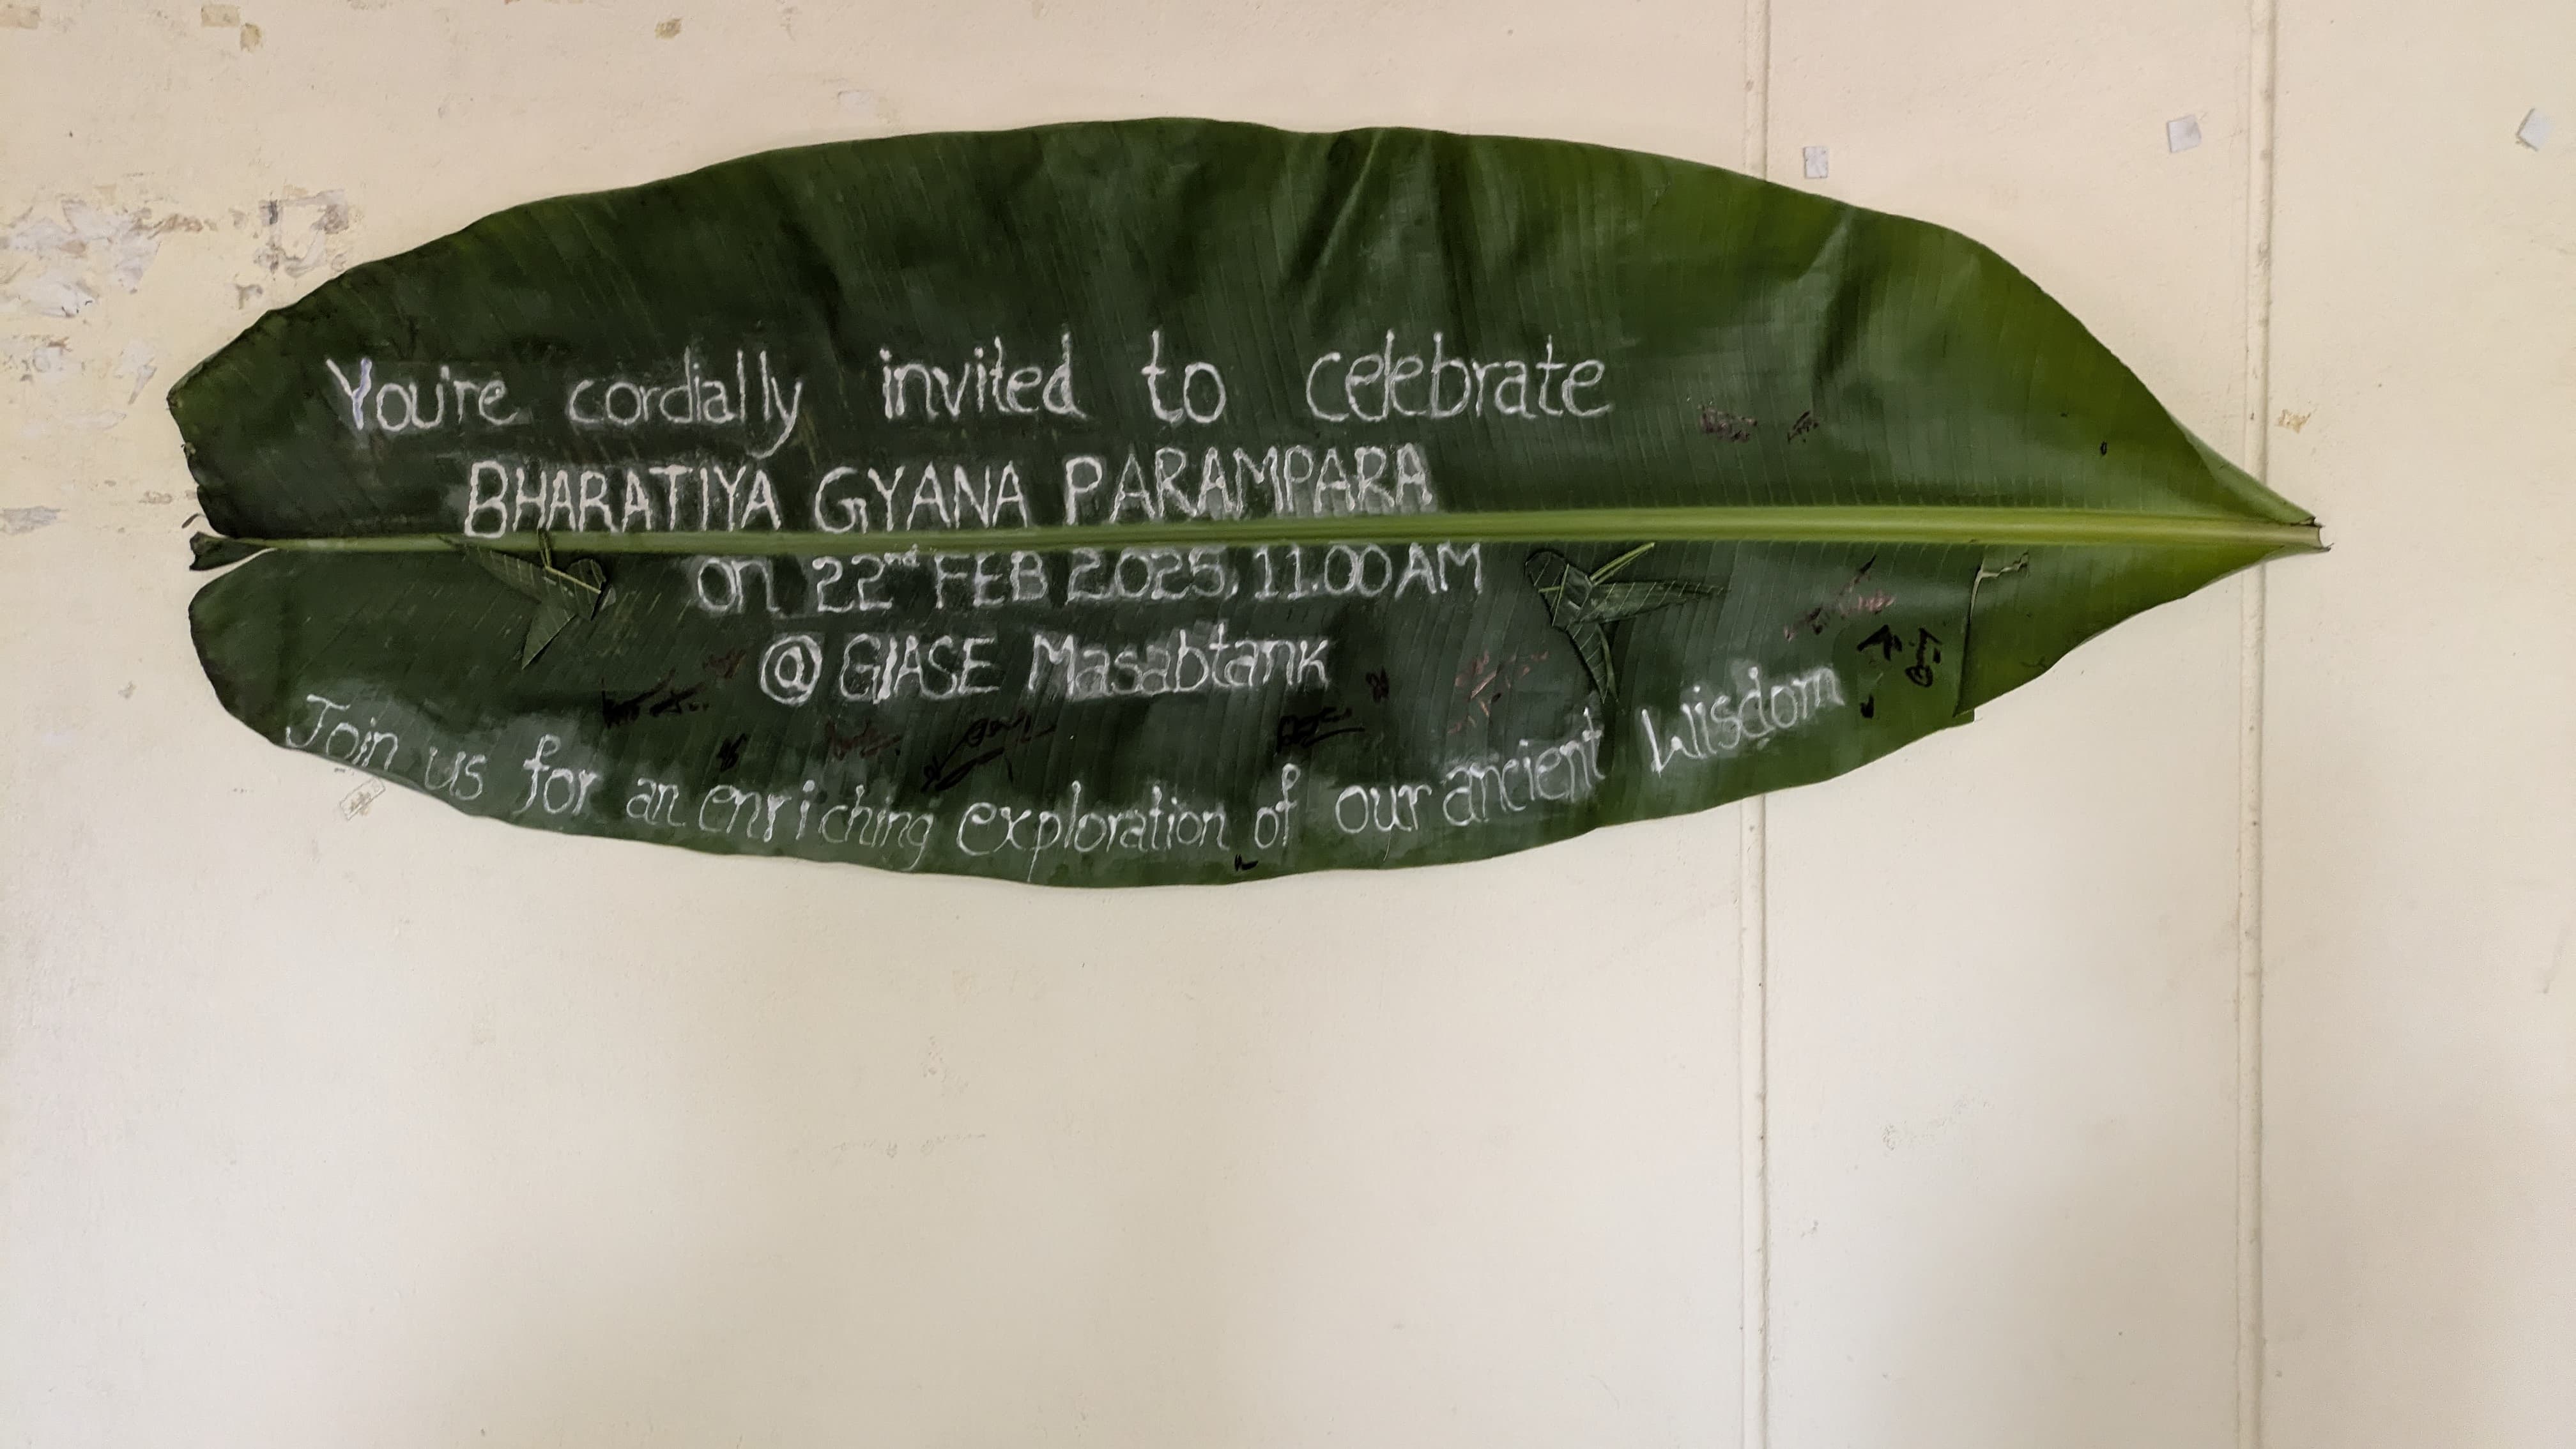 You're cordially invited to celebrate
BHARATIYA GYANA PARAMPARA
on 22nd FEB 2025, 11.00 AM
@ GIASE Masabtank
Join us for an enriching exploration of our ancient Wisdom